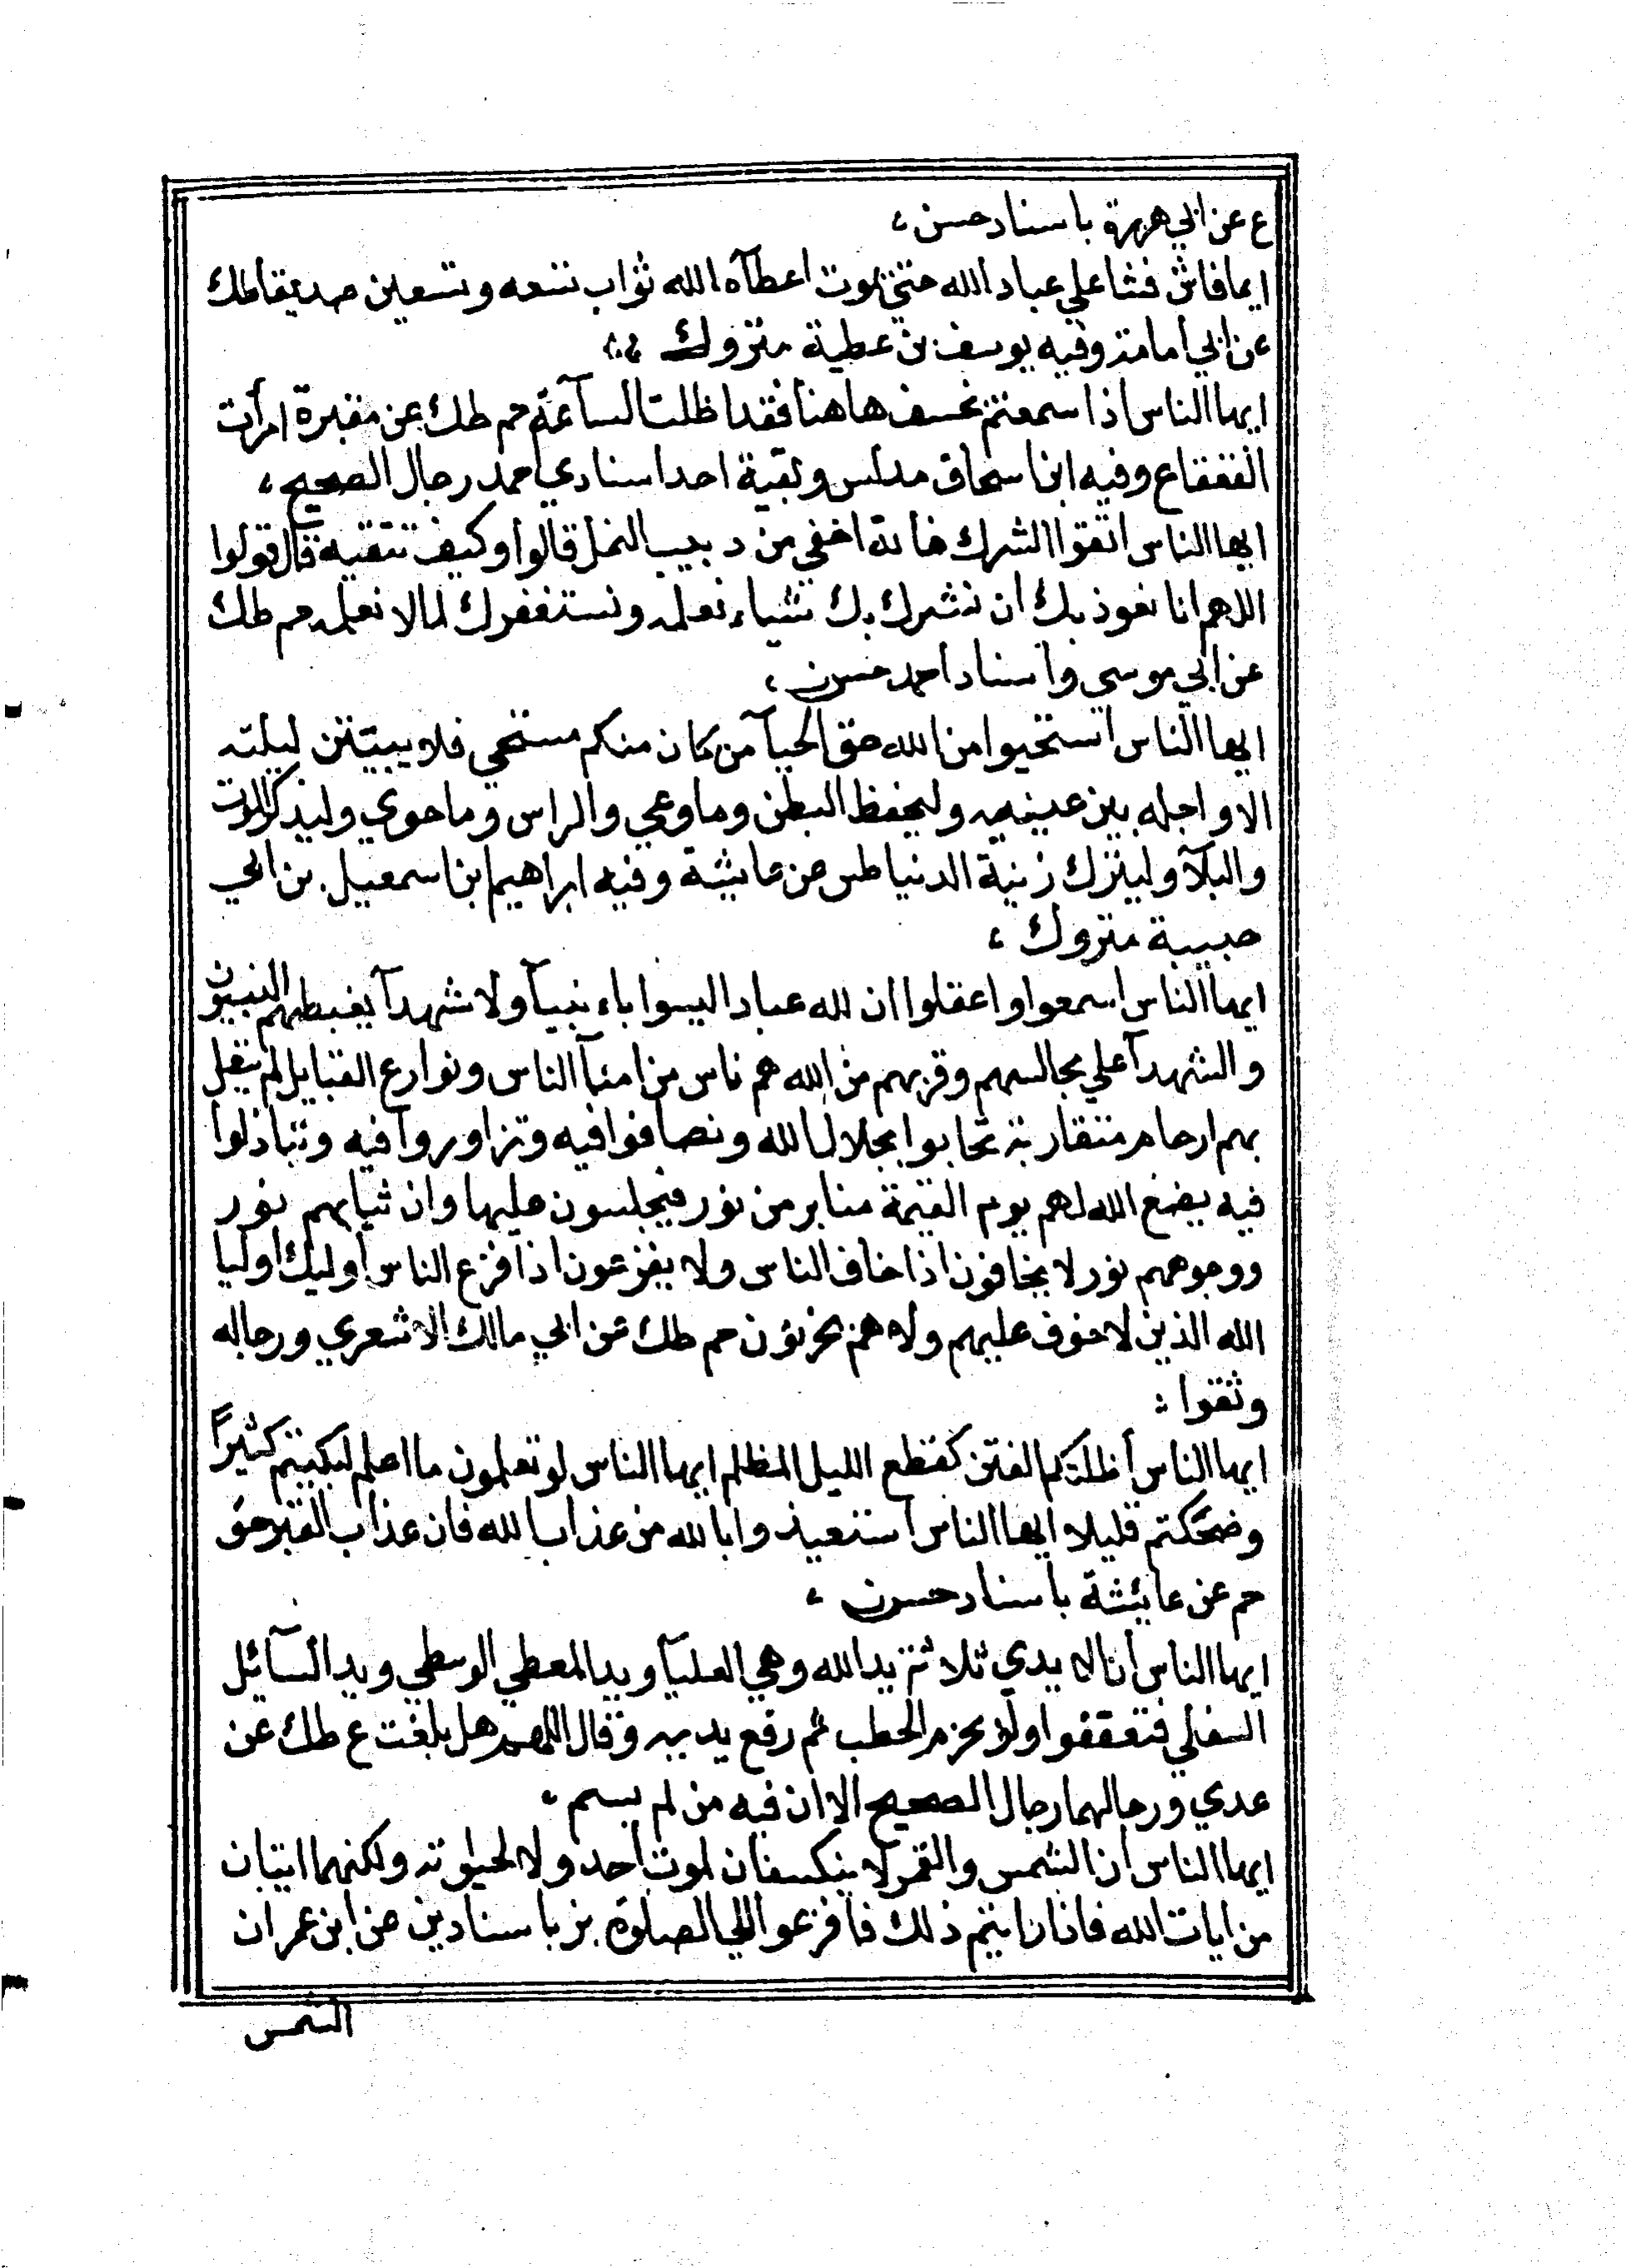 ع عن ابي هريرة باسناد حسن ،
ايما فاش فشا علي عباد الله حتي يموت اعطاه الله ثواب تسعه وتسعين صديقا طك
عن ابي امامة وفيه يوسف بن عطية متروك
ايها الناس اذا سمعتم بخسف هاهنا فقد اظلت الساعة حم طك عن مقبرة امرأت
القعقاع وفيه ابن اسحاق مدلس وبقية احد اسنادي احمد رجال الصحيح ،
ايها الناس اتقوا الشرك فأنه اخفي من دبيب النمل قالوا وكيف تتقيه قال قولوا
اللهم انا نعوذ بك ان نشرك بك شياء نعلمه ونستغفرك لما لا نعلمه حم طك
عن ابي موسي واسناد احمد حسن ،
ايها الناس استحيوا من الله حق الحيآ من كان منكم مستحي فلا يبيتن ليلته
الا واجله بين عينيه وليحفظ البطن وما وعي والراس وما حوي وليذكر الموت
والبلآ وليترك زنية الدنيا طس عن عايشة وفيه ابراهيم ابن اسمعيل بن ابي
حبيبة متروك ،
ايها الناس اسمعوا واعقلوا ان لله عبادا ليسوا باء نبيآ ولا شهدآ يغبطهم النبيون
والشهدآ علي مجالسهم وقربهم من الله هم ناس من امنآ الناس ونوارع القبايل لم تقبل
بهم ارحام متقاربة تحابوا بجلال الله وتصافوا فيه وتزاوروا فيه وتباذلوا
فيه يضع الله لهم يوم القيمة منابر من نور فيجلسون عليها وان ثيابهم نور
ووجوههم نور لا يخافون اذا خاف الناس ولا يفزعون اذا فزع الناس اوليك اوليا
الله الذين لا خوف عليهم ولا هم يحزنون حم طك عن ابي مالك الاشعري ورجاله
وثقوا :
ايها الناس أظلتكم الفتن كقطع الليل المظلم ايها الناس لو تعلمون ما اعلم لبكيتم كثيراً
وضحكتم قليلا ايها الناس استعيذوا بالله من عذاب الله فان عذاب القبر حق
حم عن عايشة باسناد حسن ،
ايها الناس أنالا يدي ثلاثة يد الله وهي العليآ ويد المعطي الوسطي ويد السآئل
السفلي فتعففوا ولو بحزم الحطب ثم رفع يديه وقال اللهم هل بلغت ع طك عن
عدي ورجالهما رجال الصحيح الا ان فيه من لم يسم ،
ايها الناس ان الشمس والقمر لا ينكسفان لموت احد ولا لحيوته ولكنهما ايتان
من ايات الله فاذا رايتم ذلك فافزعوا الي الصلوة بز باسنادين عن ابن عمر ان
الشمس